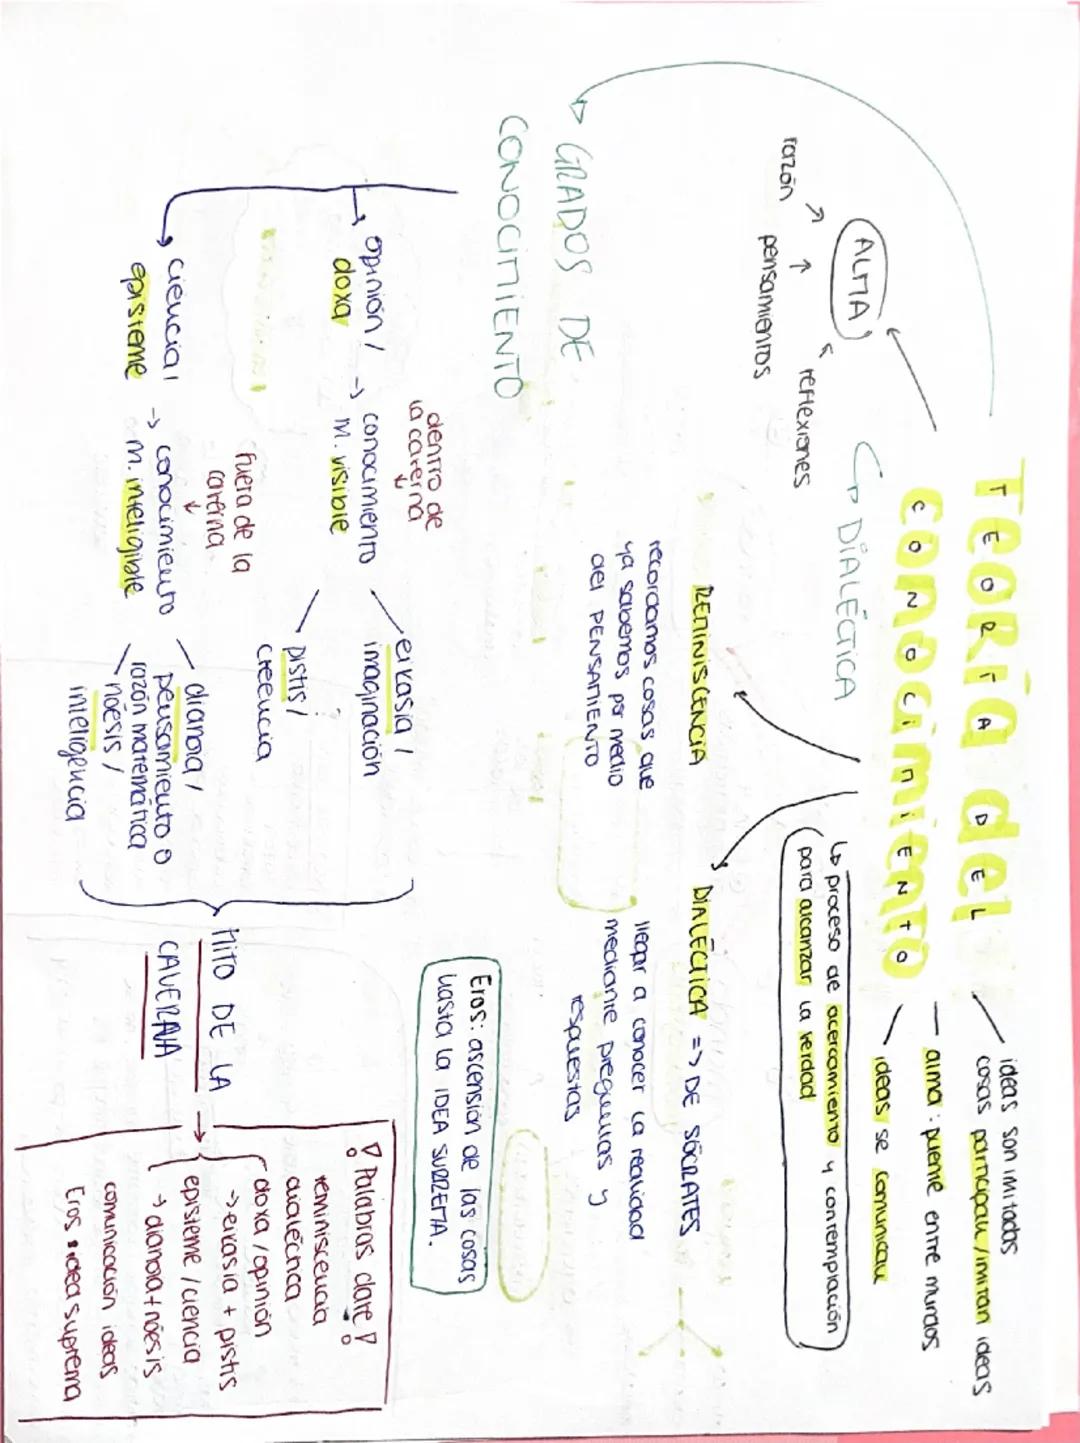 TEORÍA DEL
CONOCIMIENTO
ideas son imitadas
cosas participan/imitan ideas
alma: puente entre mundos
ideas se comunican
ALMA
razón
pensamientos
reflexiones
DIALÉCTICA
↳ proceso de acercamiento y contemplación
para alcanzar la verdad
REMINISCENCIA
recordamos cosas que
ya sabemos por medio
del PENSAMIENTO
DIALÉCTICA => DE SÓCRATES
llegar a conocer la realidad
mediante preguntas y
respuestas
Eros: ascensión de las cosas
hasta la IDEA SUPREMA.
GRADOS DE
CONOCIMIENTO
dentro de
la caverna
↓
opinión /
doxa
→ conocimiento
M. visible
eikasia /
imaginación
pistis /
creencia
fuera de la
caverna
↓
ciencia /
episteme
→ conocimiento
M. inteligible
dianoia /
pensamiento o
razón matemática
nóesis /
inteligencia
MITO DE LA
CAVERNA
¡Palabras clave!
reminiscencia
dialéctica
doxa / opinión
→ eikasia + pistis
episteme / ciencia
→ dianoia + nóesis
comunicación ideas
Eros: idea suprema